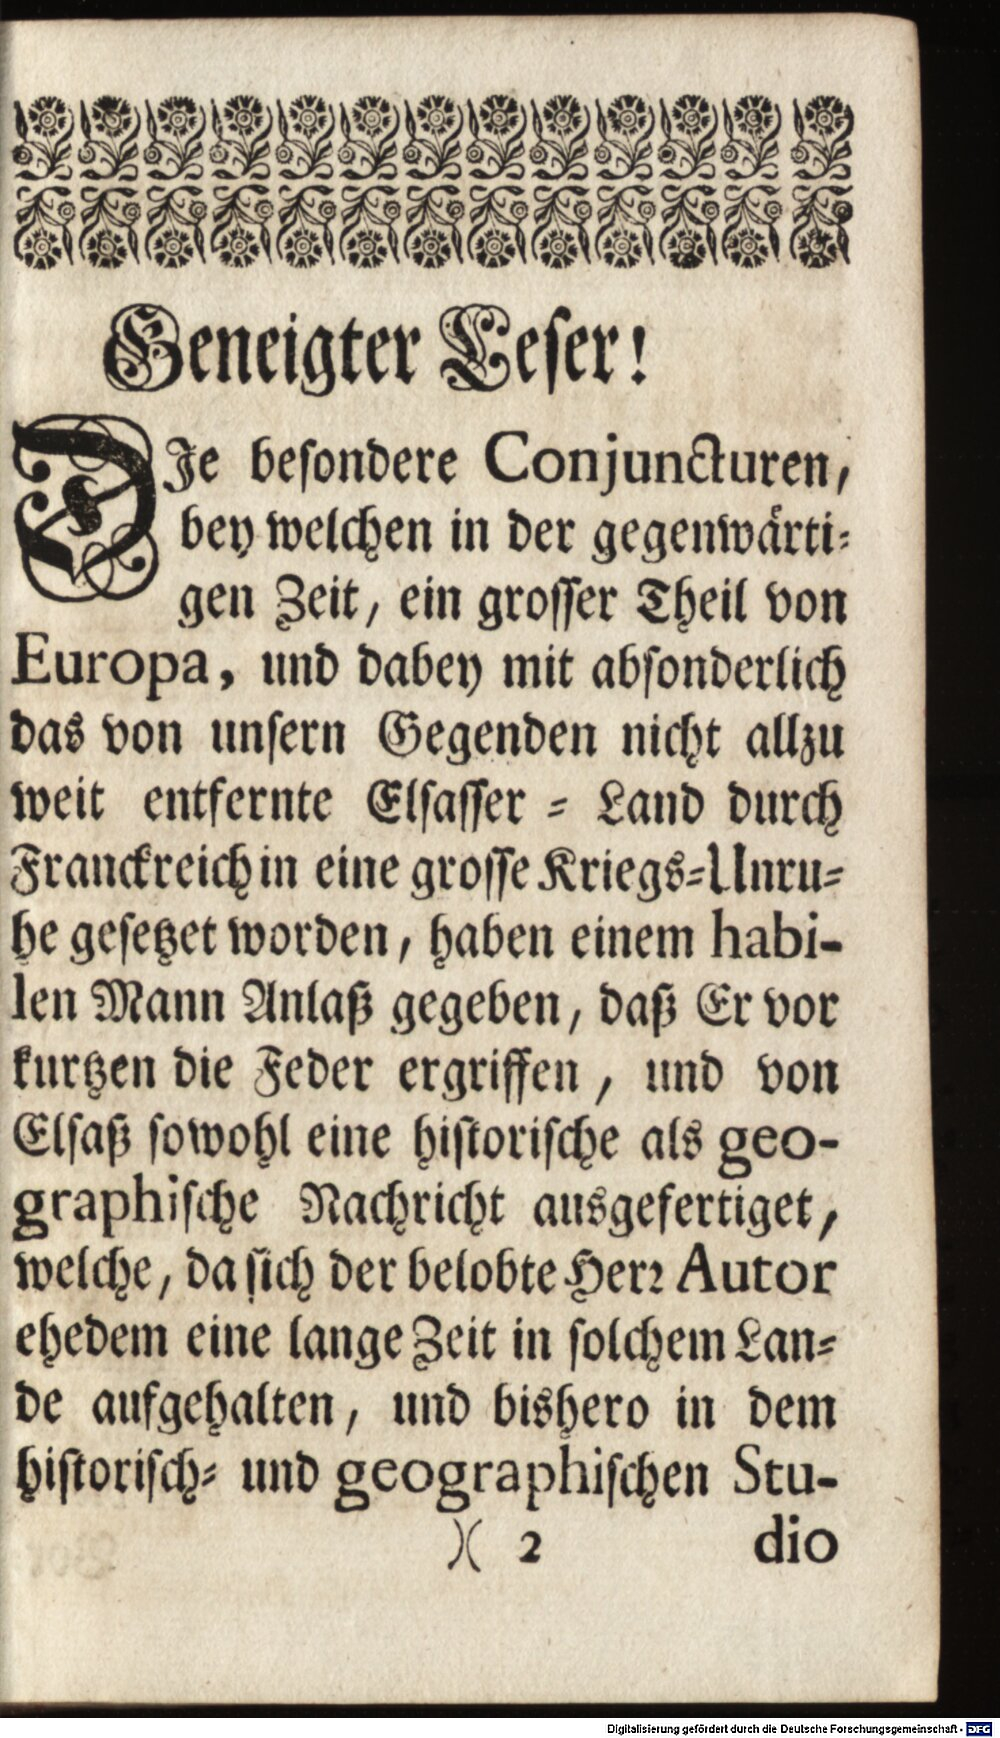 Geneigter Leſer!
DIe beſondere Conjuncturen,
bey welchen in der gegenwärti-
gen Zeit, ein groſſer Theil von
Europa, und dabey mit abſonderlich
das von unſern Gegenden nicht allzu
weit entfernte Elſaſſer - Land durch
Franckreich in eine groſſe Kriegs-Unru-
he geſetzet worden, haben einem habi-
len Mann Anlaß gegeben, daß Er vor
kurtzen die Feder ergriffen, und von
Elſaß ſowohl eine hiſtoriſche als geo-
graphiſche Nachricht ausgefertiget,
welche, da ſich der belobte Herꝛ Autor
ehedem eine lange Zeit in ſolchem Lan-
de aufgehalten, und bishero in dem
hiſtoriſch- und geographiſchen Stu-
)( 2 dio
Digitalisierung gefördert durch die Deutsche Forschungsgemeinschaft - DFG